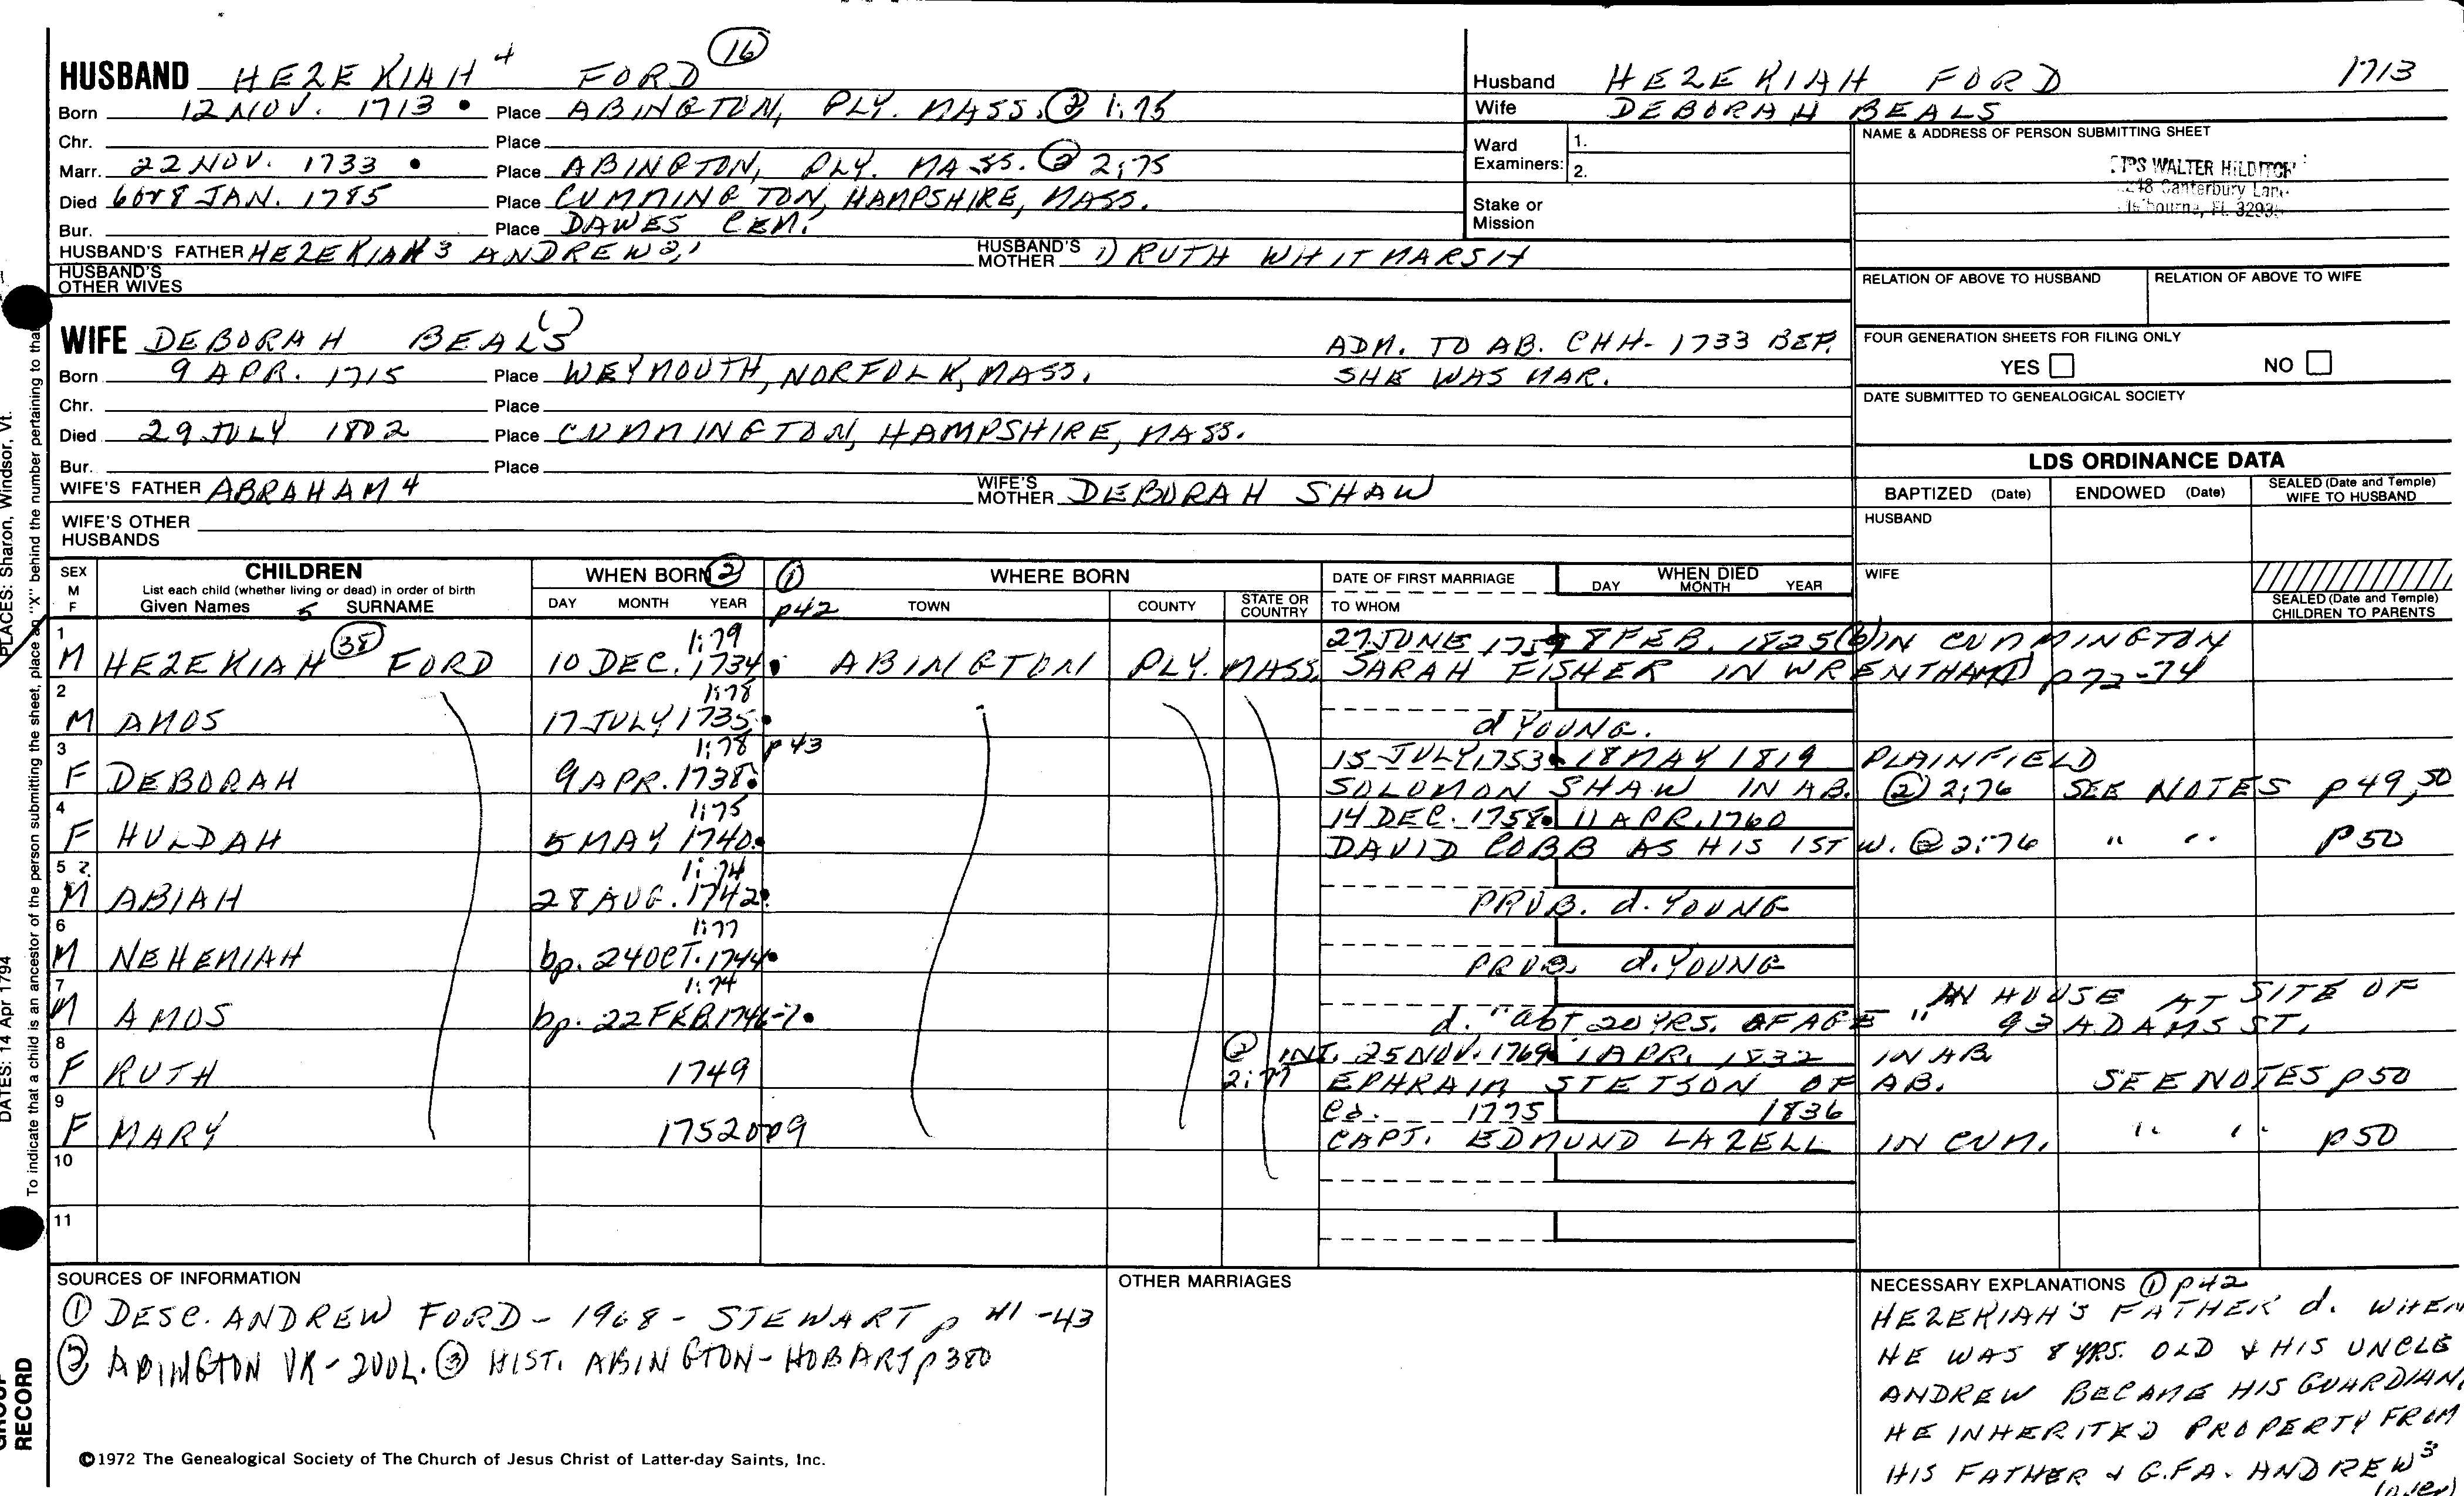 HUSBAND HEZEKIAH 4 FORD 16
Born 12 NOV. 1713 • Place ABINGTON, PLY. MASS. ② 1:75
Chr. Place
Marr. 22 NOV. 1733 • Place ABINGTON, PLY. MASS. ② 2:75
Died 6 or 8 JAN. 1785 Place CUMMINGTON, HAMPSHIRE, MASS.
Bur. Place DAWES CEM.
HUSBAND'S FATHER HEZEKIAH 3 ANDREW 2,1 HUSBAND'S MOTHER 1) RUTH WHITMARSH
HUSBAND'S OTHER WIVES
Husband HEZEKIAH FORD 1713
Wife DEBORAH BEALS
Ward Examiners: 1.
2.
Stake or Mission
NAME & ADDRESS OF PERSON SUBMITTING SHEET
WALTER HILDITCH
Canterbury Lane
FL 3293
RELATION OF ABOVE TO HUSBAND RELATION OF ABOVE TO WIFE
WIFE DEBORAH BEAL(S)
ADM. TO AB. CHH. 1733 BEF.
SHE WAS MAR.
Born 9 APR. 1715 Place WEYMOUTH, NORFOLK, MASS.
Chr. Place
Died 29 JULY 1802 Place CUMMINGTON, HAMPSHIRE, MASS.
Bur. Place
WIFE'S FATHER ABRAHAM 4 WIFE'S MOTHER DEBORAH SHAW
WIFE'S OTHER HUSBANDS
FOUR GENERATION SHEETS FOR FILING ONLY
YES NO
DATE SUBMITTED TO GENEALOGICAL SOCIETY
LDS ORDINANCE DATA
BAPTIZED (Date) ENDOWED (Date) SEALED (Date and Temple) WIFE TO HUSBAND
HUSBAND
WIFE
SEALED (Date and Temple) CHILDREN TO PARENTS
SEX M F CHILDREN WHEN BORN ② ① WHERE BORN DATE OF FIRST MARRIAGE WHEN DIED
List each child (whether living or dead) in order of birth
Given Names 5 SURNAME DAY MONTH YEAR p42 TOWN COUNTY STATE OR COUNTRY TO WHOM DAY MONTH YEAR
1 1:79 27 JUNE 1759 8 FEB. 1825 (6) IN CUMMINGTON
M HEZEKIAH 38 FORD 10 DEC. 1734 • ABINGTON PLY. MASS. SARAH FISHER IN WRENTHAM ① p72-74
2 1:78
M AMOS 17 JULY 1735 • d YOUNG.
3 1:78 p43 15 JULY, 1753 • 18 MAY 1819 PLAINFIELD
F DEBORAH 9 APR. 1738 • SOLOMON SHAW IN AB. ② 2:76 SEE NOTES p49,50
4 1:75 14 DEC. 1758 • 11 APR. 1760
F HULDAH 5 MAY 1740 • DAVID COBB AS HIS 1ST W. ② 2:76 " " p50
5 ? 1:74
M ABIAH 28 AUG. 1742 • PROB. d. YOUNG
6 1:77
M NEHEMIAH bp. 24 OCT. 1744 • PROB. d. YOUNG
7 1:74 IN HOUSE AT SITE OF
M AMOS bp. 22 FEB. 1746-7 • d. "abt 20 YRS. OF AGE" 93 ADAMS ST.
8 ② INT. 25 NOV. 1769 • 1 APR. 1832 IN AB
F RUTH 1749 2:77 EPHRAIM STETSON OF AB. SEE NOTES p50
9 Ca. 1775 1836
F MARY 1752 or 9 CAPT. EDMUND LAZELL IN CUM. " " p50
10
11
SOURCES OF INFORMATION
① DESC. ANDREW FORD - 1968 - STEWART p 41-43
② ABINGTON VR - 2 VOL. ③ HIST. ABINGTON - HOBART p380
OTHER MARRIAGES
NECESSARY EXPLANATIONS ① p42
HEZEKIAH'S FATHER d. WHEN
HE WAS 8 YRS. OLD & HIS UNCLE
ANDREW BECAME HIS GUARDIAN.
HE INHERITED PROPERTY FROM
HIS FATHER & G.FA. ANDREW 3
(over)
©1972 The Genealogical Society of The Church of Jesus Christ of Latter-day Saints, Inc.
PLACES: Sharon, Windsor, Vt.
DATES: 14 Apr 1794
To indicate that a child is an ancestor of the person submitting the sheet, place an "X" behind the number pertaining to that
GROUP
RECORD